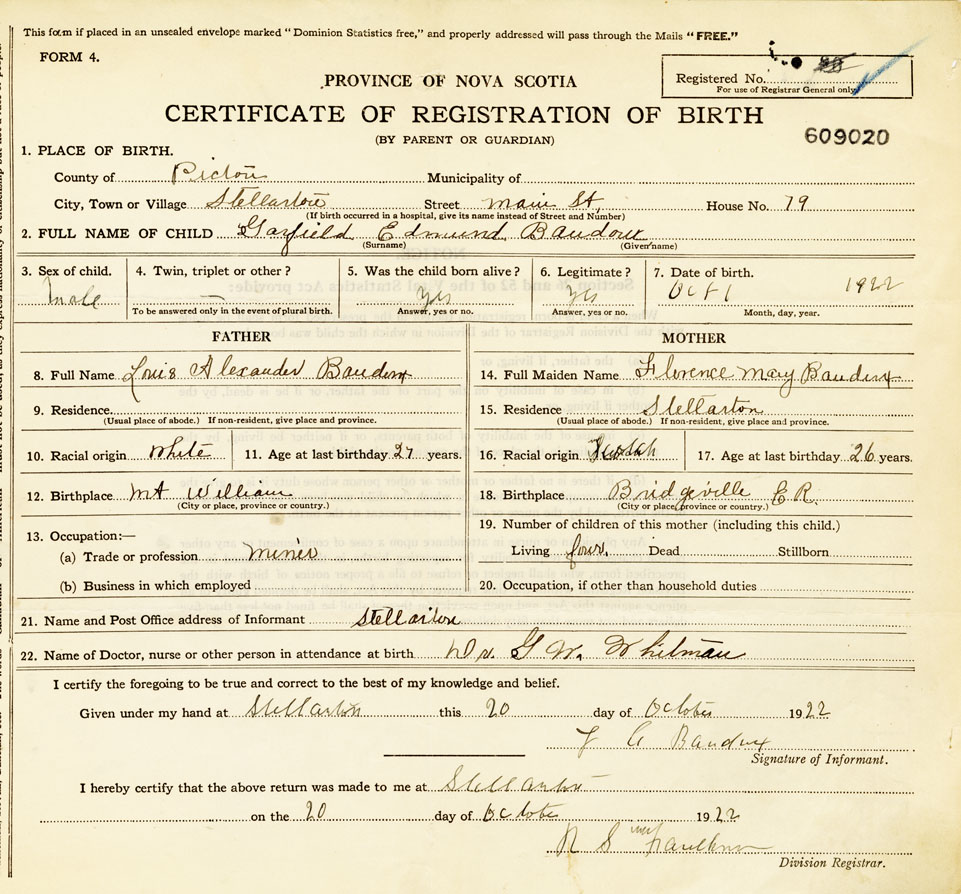 This form if placed in an unsealed envelope marked "Dominion Statistics free," and properly addressed will pass through the Mails "FREE."
FORM 4.
Registered No.
For use of Registrar General only
PROVINCE OF NOVA SCOTIA
CERTIFICATE OF REGISTRATION OF BIRTH
(BY PARENT OR GUARDIAN)
609020
1. PLACE OF BIRTH.
County of Pictou Municipality of
City, Town or Village Stellarton Street Main St. House No. 79
(If birth occurred in a hospital, give its name instead of Street and Number)
2. FULL NAME OF CHILD Garfield Edmund Baudoux
(Surname) (Given name)
3. Sex of child. 4. Twin, triplet or other? 5. Was the child born alive? 6. Legitimate? 7. Date of birth.
Male — Yes Yes Oct 1 1922
To be answered only in the event of plural birth. Answer, yes or no. Answer, yes or no. Month, day, year.
FATHER MOTHER
8. Full Name Louis Alexander Baudoux 14. Full Maiden Name Florence Mary Baudoux
9. Residence. 15. Residence Stellarton
(Usual place of abode.) If non-resident, give place and province. (Usual place of abode.) If non-resident, give place and province.
10. Racial origin White 11. Age at last birthday 27 years. 16. Racial origin Scotch 17. Age at last birthday 26 years.
12. Birthplace Mt William 18. Birthplace Bridgeville E R.
(City or place, province or country.) (City or place, province or country.)
13. Occupation:— 19. Number of children of this mother (including this child.)
(a) Trade or profession miner Living four. Dead Stillborn
(b) Business in which employed 20. Occupation, if other than household duties
21. Name and Post Office address of Informant Stellarton
22. Name of Doctor, nurse or other person in attendance at birth Dr. G W. Whitman
I certify the foregoing to be true and correct to the best of my knowledge and belief.
Given under my hand at Stellarton this 20 day of October 1922
A Baudoux
Signature of Informant.
I hereby certify that the above return was made to me at Stellarton
on the 20 day of October 1922
Division Registrar.